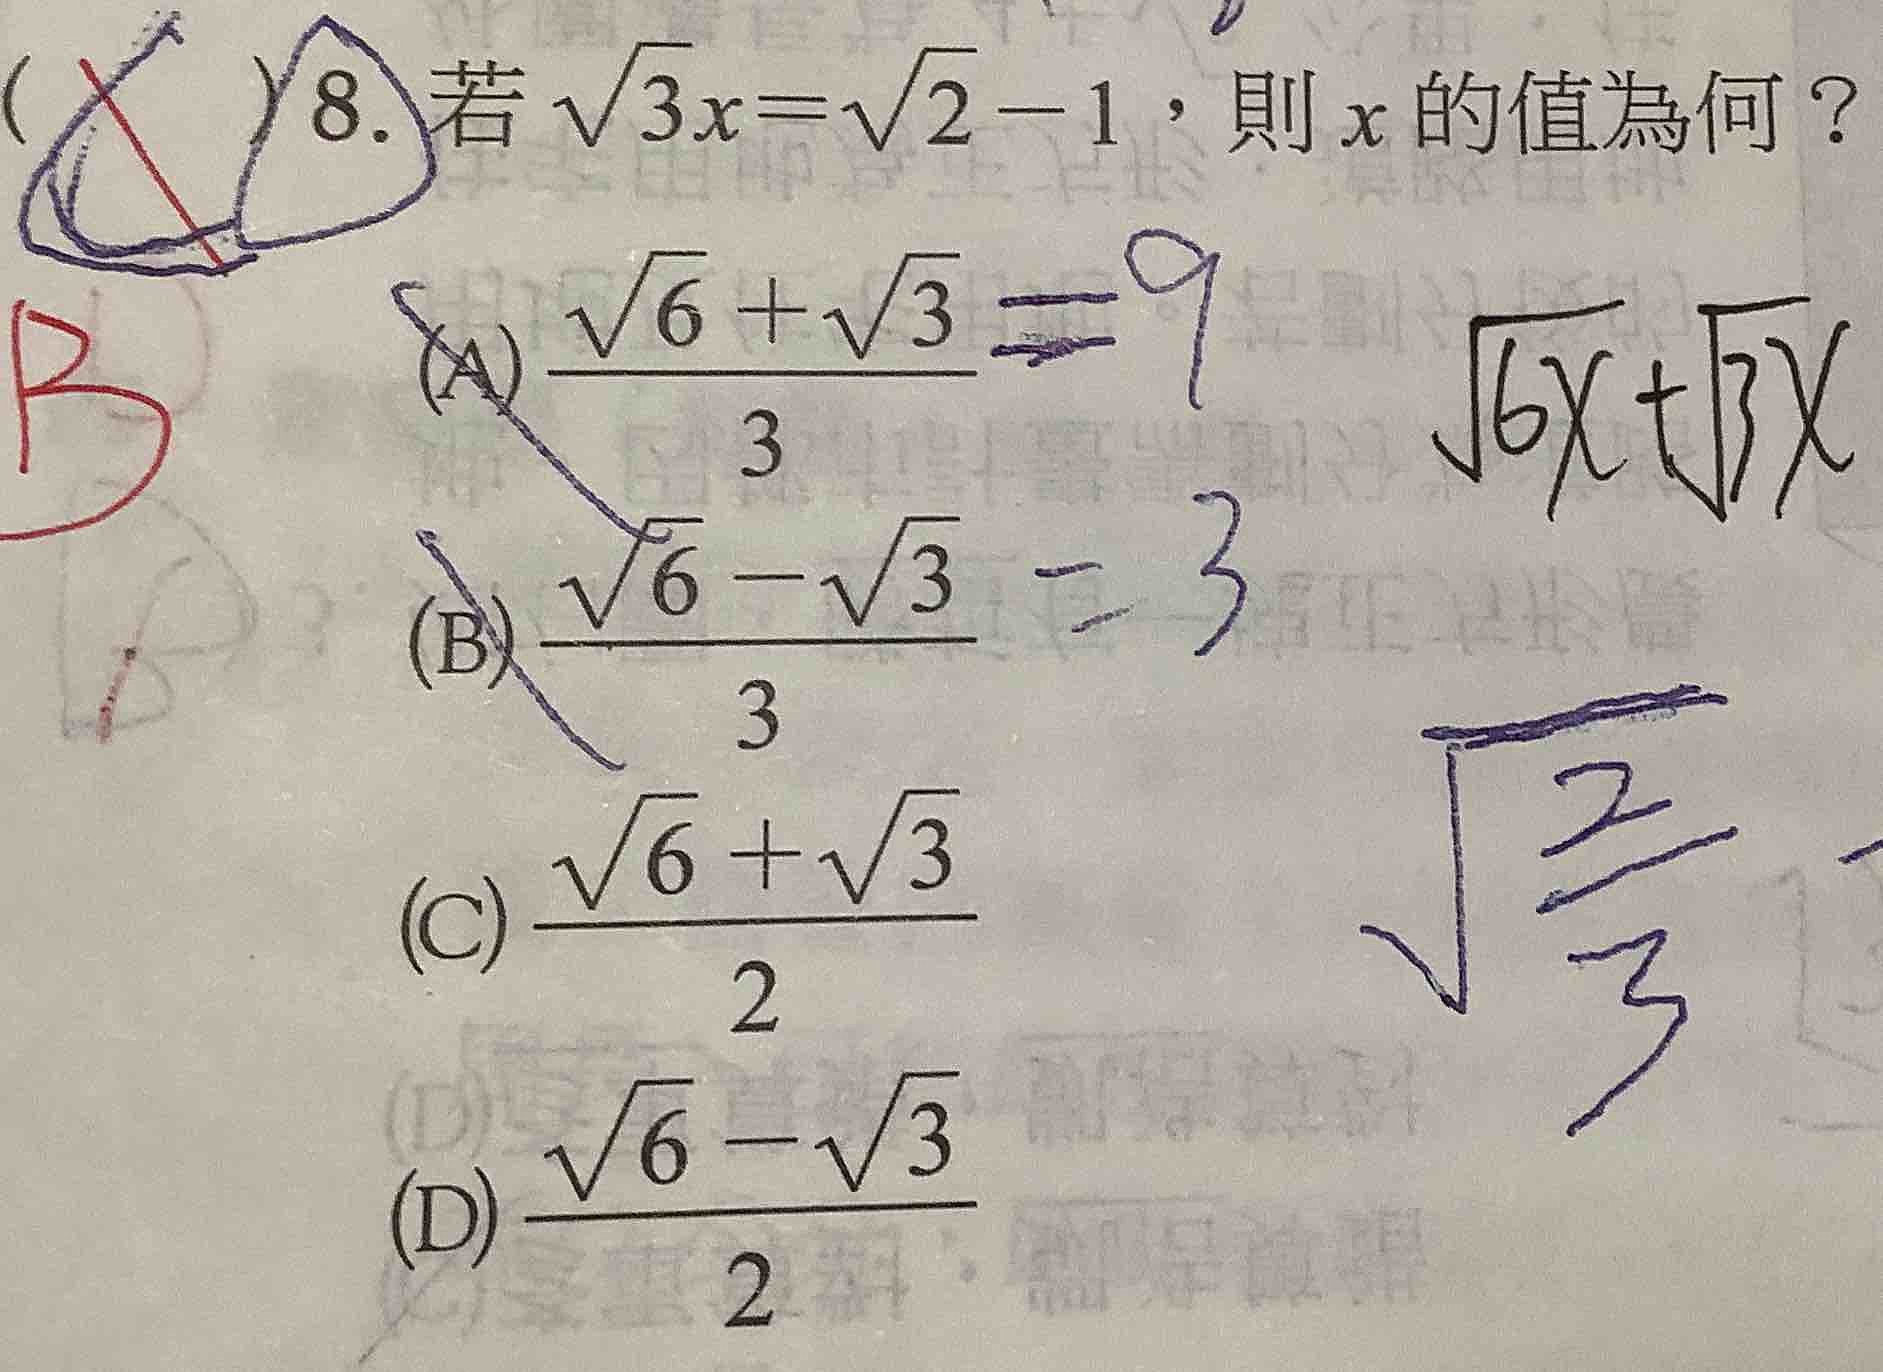 ( ) 8. 若 √3x=√2－1，則 x 的值為何？
(A) (√6+√3)/3 = 9
√6x+√3x
B
(B) (√6－√3)/3 = 3
√(2/3)
(C) (√6+√3)/2
(D) (√6－√3)/2